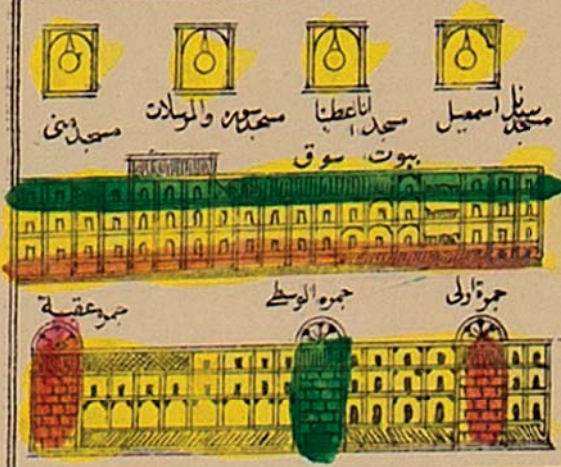 مسجد سيدنا اسمعيل
مسجد انا اعطينا
مسجد سوره والمرسلات
مسجد منى
بيوت سوق
جمرة اولى
جمره الوسطى
جمره عقبة